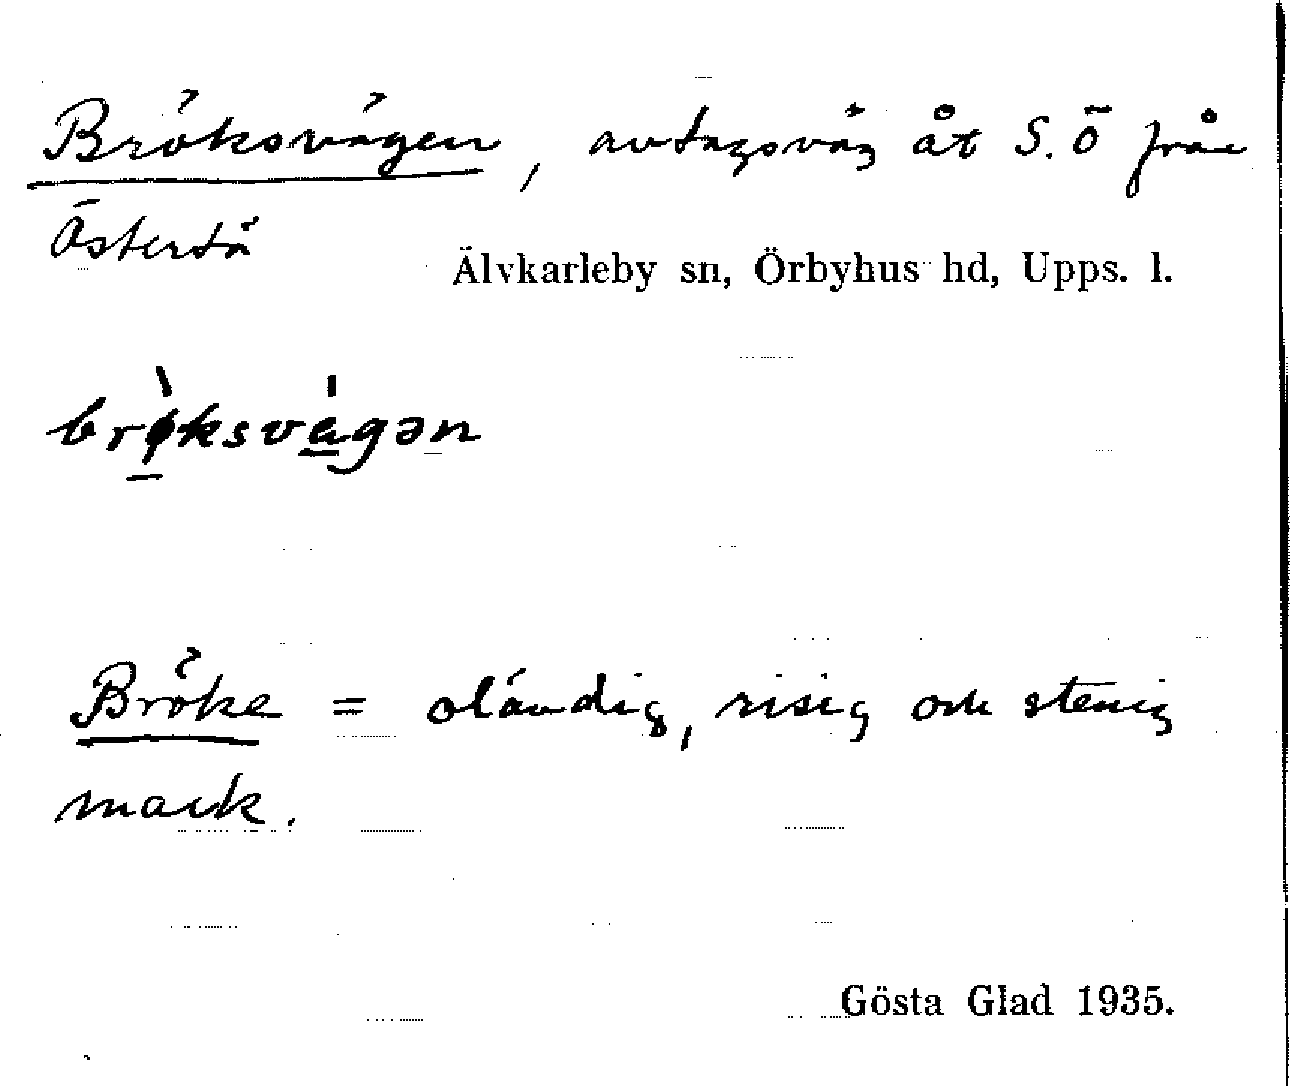 Bröksvägen, avtagsväg åt S.Ö från
Östertä
Älvkarleby sn, Örbyhus hd, Upps. l.
brø̀ksvágən
Bröke = oländig, risig och stenig
mark.
Gösta Glad 1935.